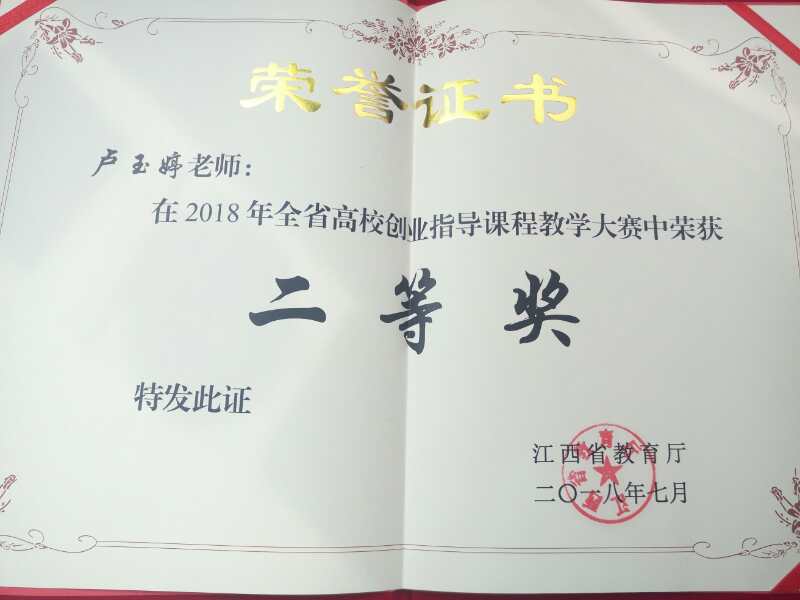 荣誉证书
卢玉婷老师：
在2018年全省高校创业指导课程教学大赛中荣获
二等奖
特发此证
江西省教育厅
二〇一八年七月
江西省教育厅